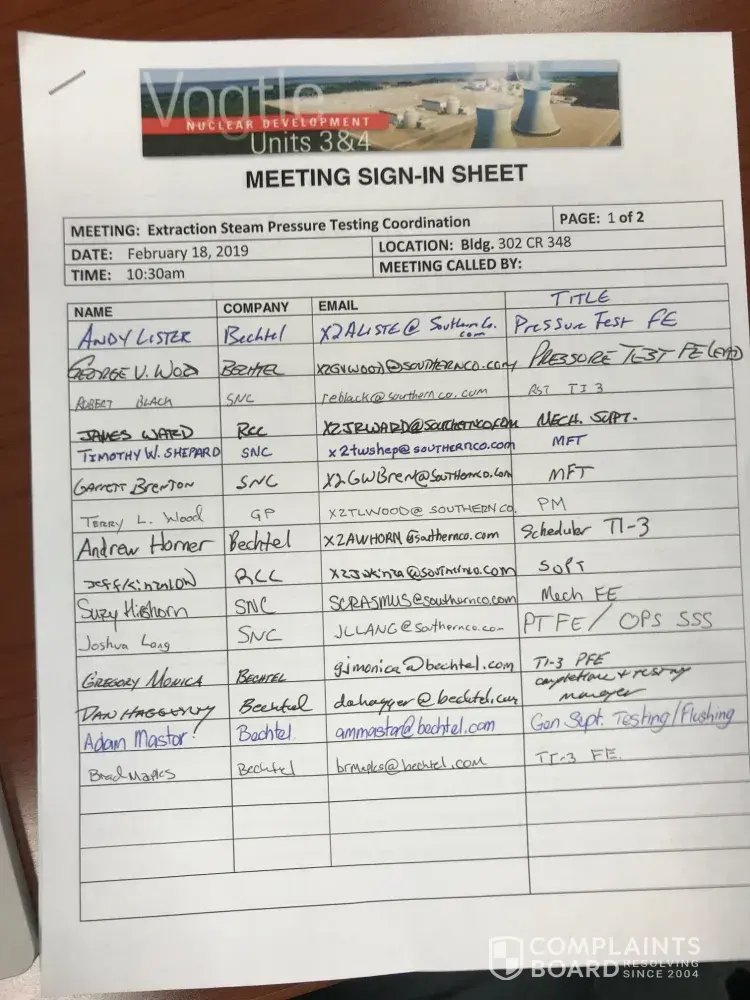 Vogtle
NUCLEAR DEVELOPMENT
Units 3&4
MEETING SIGN-IN SHEET
MEETING: Extraction Steam Pressure Testing Coordination PAGE: 1 of 2
DATE: February 18, 2019 LOCATION: Bldg. 302 CR 348
TIME: 10:30am MEETING CALLED BY:
NAME COMPANY EMAIL TITLE
ANDY LISTER Bechtel X2ALISTE@ SouthernCo.com Pressure Test FE
GEORGE V. WOOD BECHTEL X2GVWOOD@SOUTHERNCO.com PRESSURE TEST FE
ROBERT BLACK SNC reblack@southernco.com TI 3
JAMES WARD RCC X2JRWARD@SOUTHERNCO.COM MECH. SUPT.
TIMOTHY W. SHEPARD SNC x2twshep@SOUTHERNCO.com MFT
GARRETT BRENTON SNC X2GWBren@SouthernCo.com MFT
TERRY L. Wood GP X2TLWOOD@ SOUTHERNCO. PM
Andrew Horner Bechtel X2AWHORN@southernco.com Scheduler TI-3
Jeff RCC SUPT
Suzy SNC SCRASMUS@southernco.com Mech FE
Joshua Lang SNC JLLANG@southernco.com PTFE/ OPS SSS
GREGORY MONICA BECHTEL gjmonica@bechtel.com TI-3 PFE
DAN HAGGERTY Bechtel dahagger@bechtel.com completion + testing
manager
Adam Mastor Bechtel ammastor@bechtel.com Gen Supt. Testing/Flushing
Brad Maples Bechtel brmaples@bechtel.com TI-3 FE.
COMPLAINTS
BOARD RESOLVING
SINCE 2004